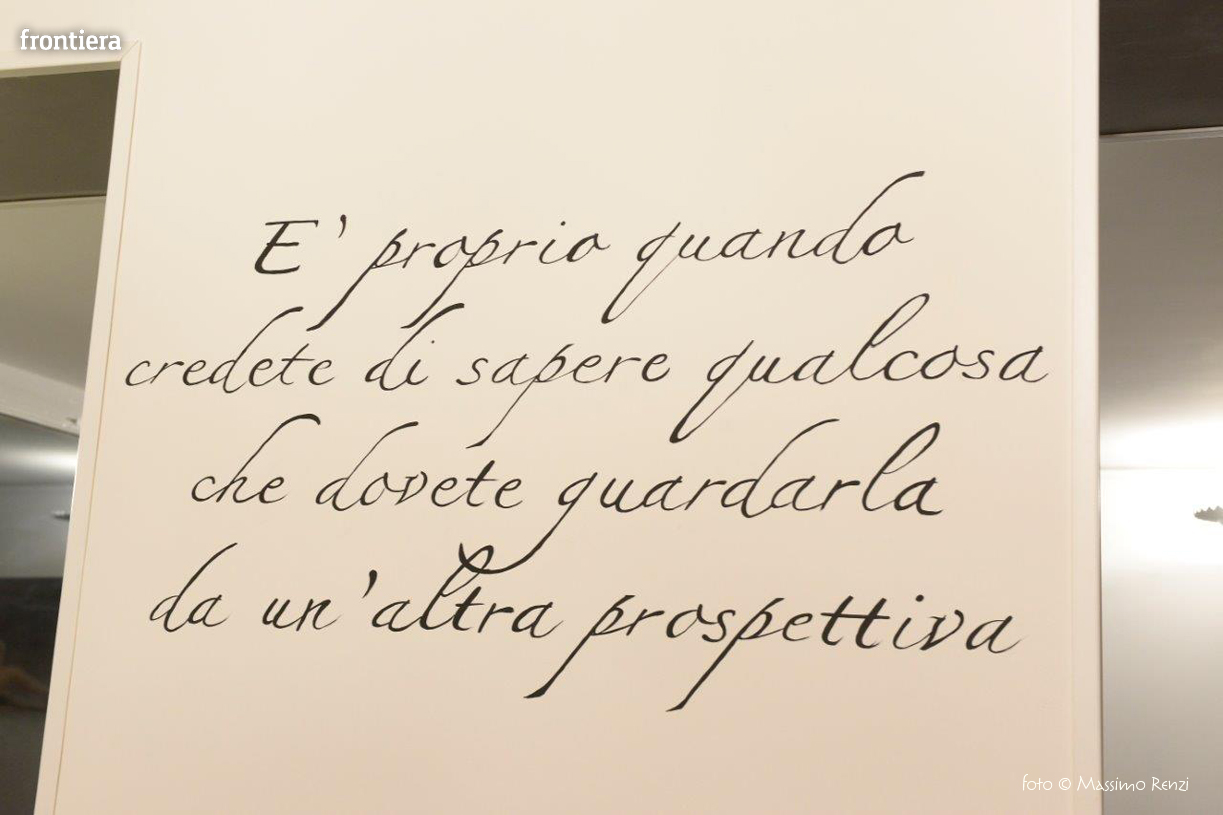 frontiera
E' proprio quando
credete di sapere qualcosa
che dovete guardarla
da un'altra prospettiva
foto © Massimo Renzi